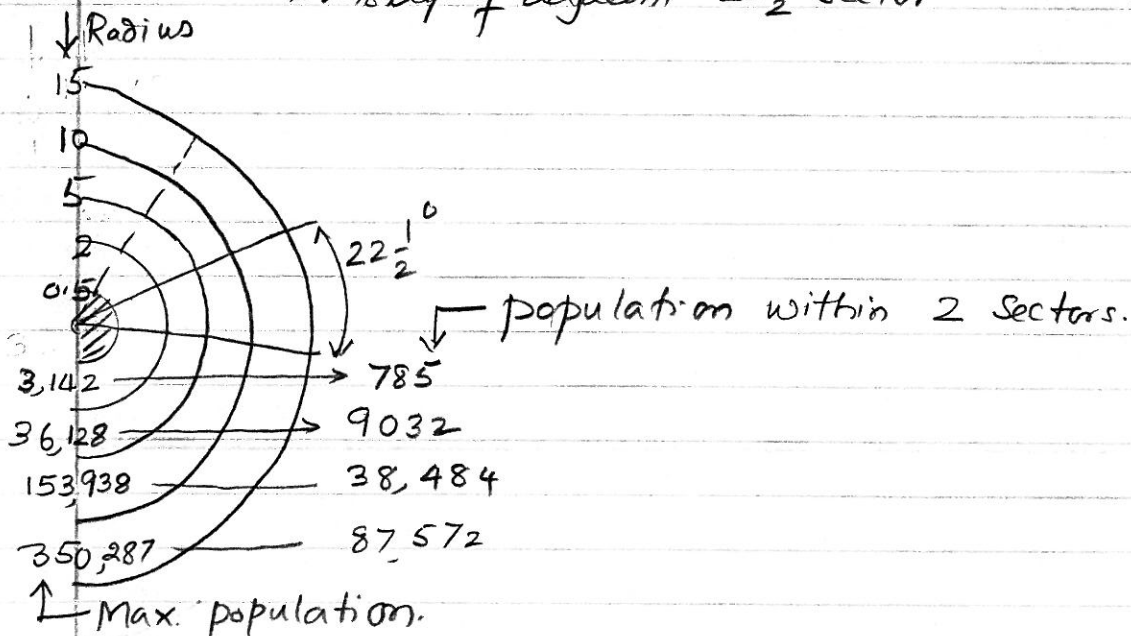 2 Sector
↓ Radius
15
10
5
2
0.5
22 1/2°
population within 2 Sectors.
3,142 → 785
36,128 → 9032
153,938 — 38,484
350,287 — 87,572
Max. population.